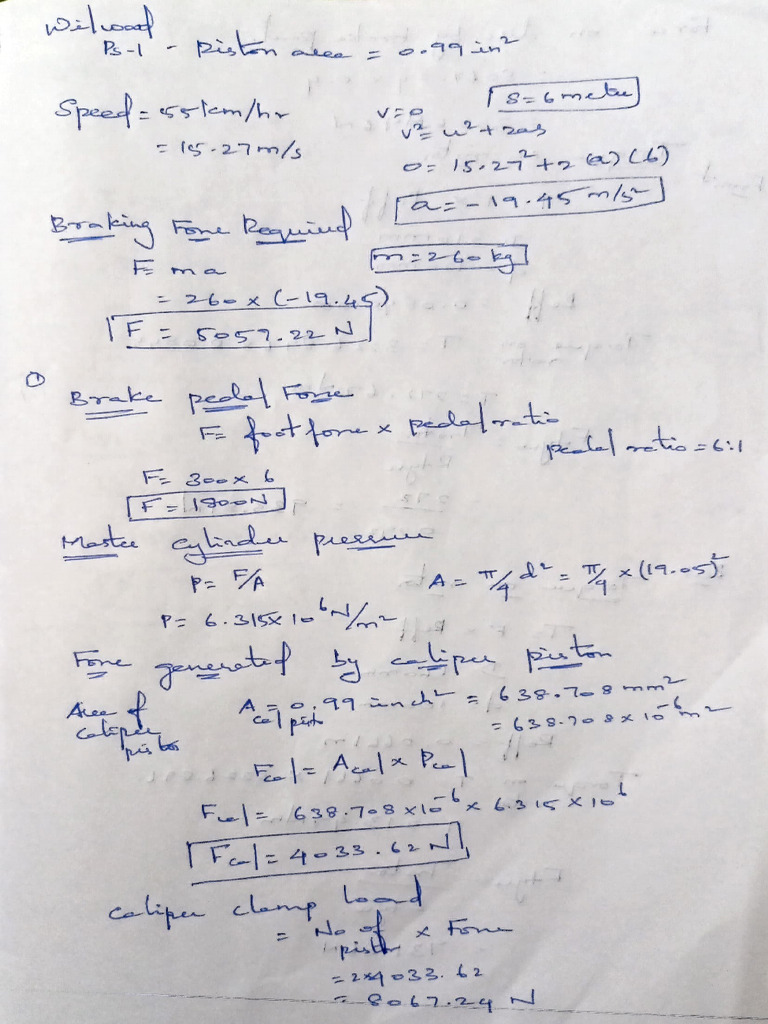 Wilwood
PS-1 - Piston area = 0.99 in²
S = 6 meter
Speed = 55 km/hr
= 15.27 m/s
v = 0
v² = u² + 2as
0 = 15.27² + 2 (a) (6)
a = - 19.45 m/s²
Braking Force Required
m = 260 kg
F = ma
= 260 x (-19.45)
F = 5057.22 N
① Brake pedal Force
F = foot force x pedal ratio
pedal ratio = 6:1
F = 300 x 6
F = 1800 N
Master cylinder pressure
P = F/A
A = π/4 d² = π/4 x (19.05)²
P = 6.315 x 10⁶ N/m²
Force generated by caliper piston
Area of caliper piston
A cal pist = 0.99 inch² = 638.708 mm²
= 638.708 x 10⁻⁶ m²
Fcal = Acal x Pcal
Fcal = 638.708 x 10⁻⁶ x 6.315 x 10⁶
Fcal = 4033.62 N
caliper clamp load
= No of piston x Force
= 2x4033.62
= 8067.24 N